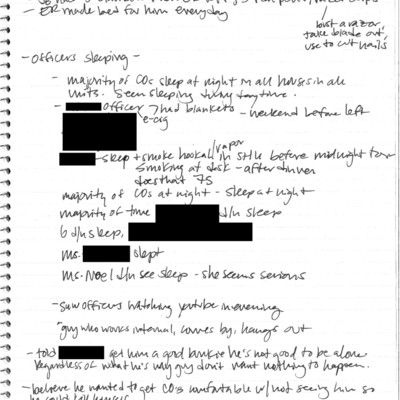 - ER made bed for him everyday
bust a razor,
take blade out,
use to cut nails
- Officers sleeping -
- majority of COs sleep at night in all houses in all
units. Seen sleeping during day time.
- officer had blankets - weekend before left
e-org
/vapor
- sleep + smoke hookah in SHU before midnight tour
smoking at desk - after dinner
does that 7s
majority of COs at night - sleep at night
majority of time d/n sleep
6 d/n sleep,
ms. slept
ms. Noel d/n see sleep - she seems serious
- saw officers watching youtube in evening
"guy who works internal, comes by, hangs out
- told get him a good bunkie he's not good to be alone
regardless of what he's why guy don't want nothing to happen.
- believe he wanted to get CO's comfortable w/ not seeing him so
he could kill himself